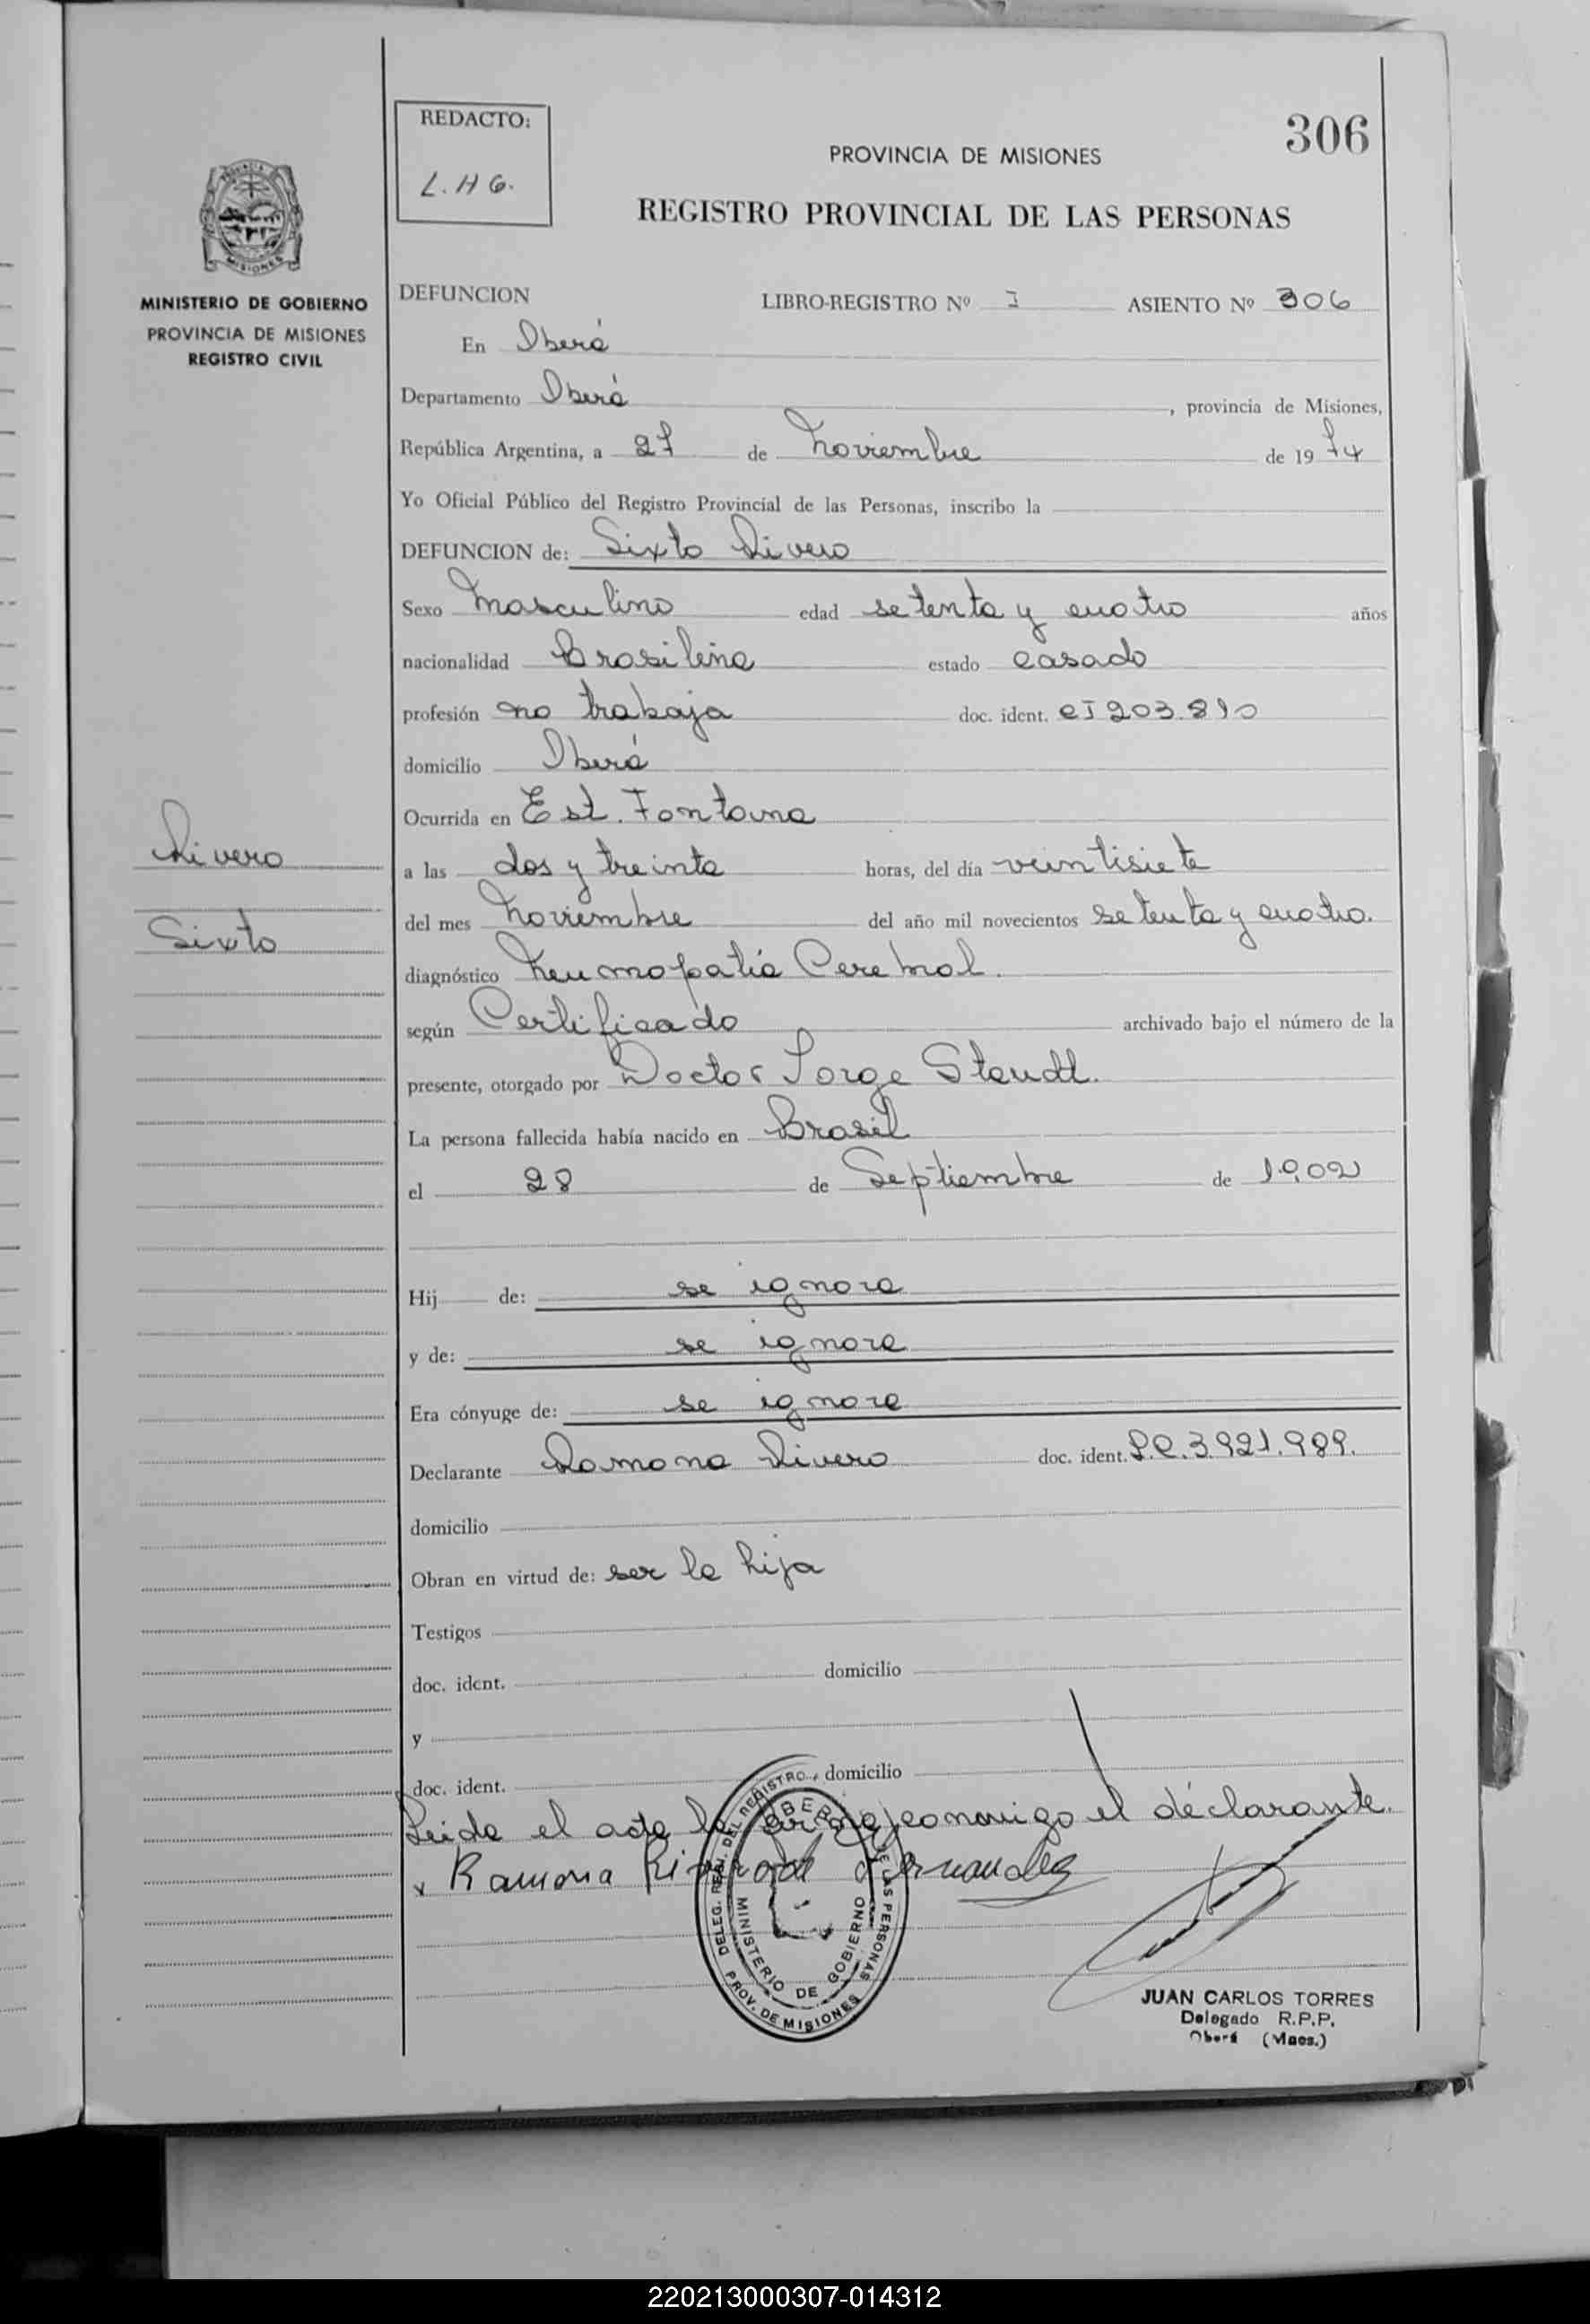 306
REDACTO:
L.H G.
PROVINCIA DE MISIONES
REGISTRO PROVINCIAL DE LAS PERSONAS
MISIONES
MINISTERIO DE GOBIERNO
PROVINCIA DE MISIONES
REGISTRO CIVIL
DEFUNCION LIBRO-REGISTRO Nº I ASIENTO Nº 306
En Oberá
Departamento Oberá , provincia de Misiones,
República Argentina, a 27 de Noviembre de 19 74
Yo Oficial Público del Registro Provincial de las Personas, inscribo la
DEFUNCION de: Sixto Rivero
Sexo Masculino edad setenta y cuatro años
nacionalidad Brasileña estado casado
profesión no trabaja doc. ident. CI 203.810
domicilio Oberá
Ocurrida en Est. Fontana
Rivero
a las dos y treinta horas, del día veintisiete
del mes Noviembre del año mil novecientos setenta y cuatro.
Sixto
diagnóstico Neumopatia Cerebral.
según Certificado archivado bajo el número de la
presente, otorgado por Doctor Jorge Staudt.
La persona fallecida había nacido en Brasil
el 28 de Septiembre de 1902
Hij de: se ignora
y de: se ignora
Era cónyuge de: se ignora
Declarante Ramona Rivero doc. ident. L.C. 3.921.989.
domicilio
Obran en virtud de: ser la hija
Testigos
doc. ident. domicilio
y
doc. ident. domicilio
Leida el acta la firma conmigo el declarante.
x Ramona Rivero de Fernandez
DELEG. REGI. DEL REGISTRO DE LAS PERSONAS
MINISTERIO DE GOBIERNO
PROV. DE MISIONES
JUAN CARLOS TORRES
Delegado R.P.P.
Oberá (Mnes.)
220213000307-014312